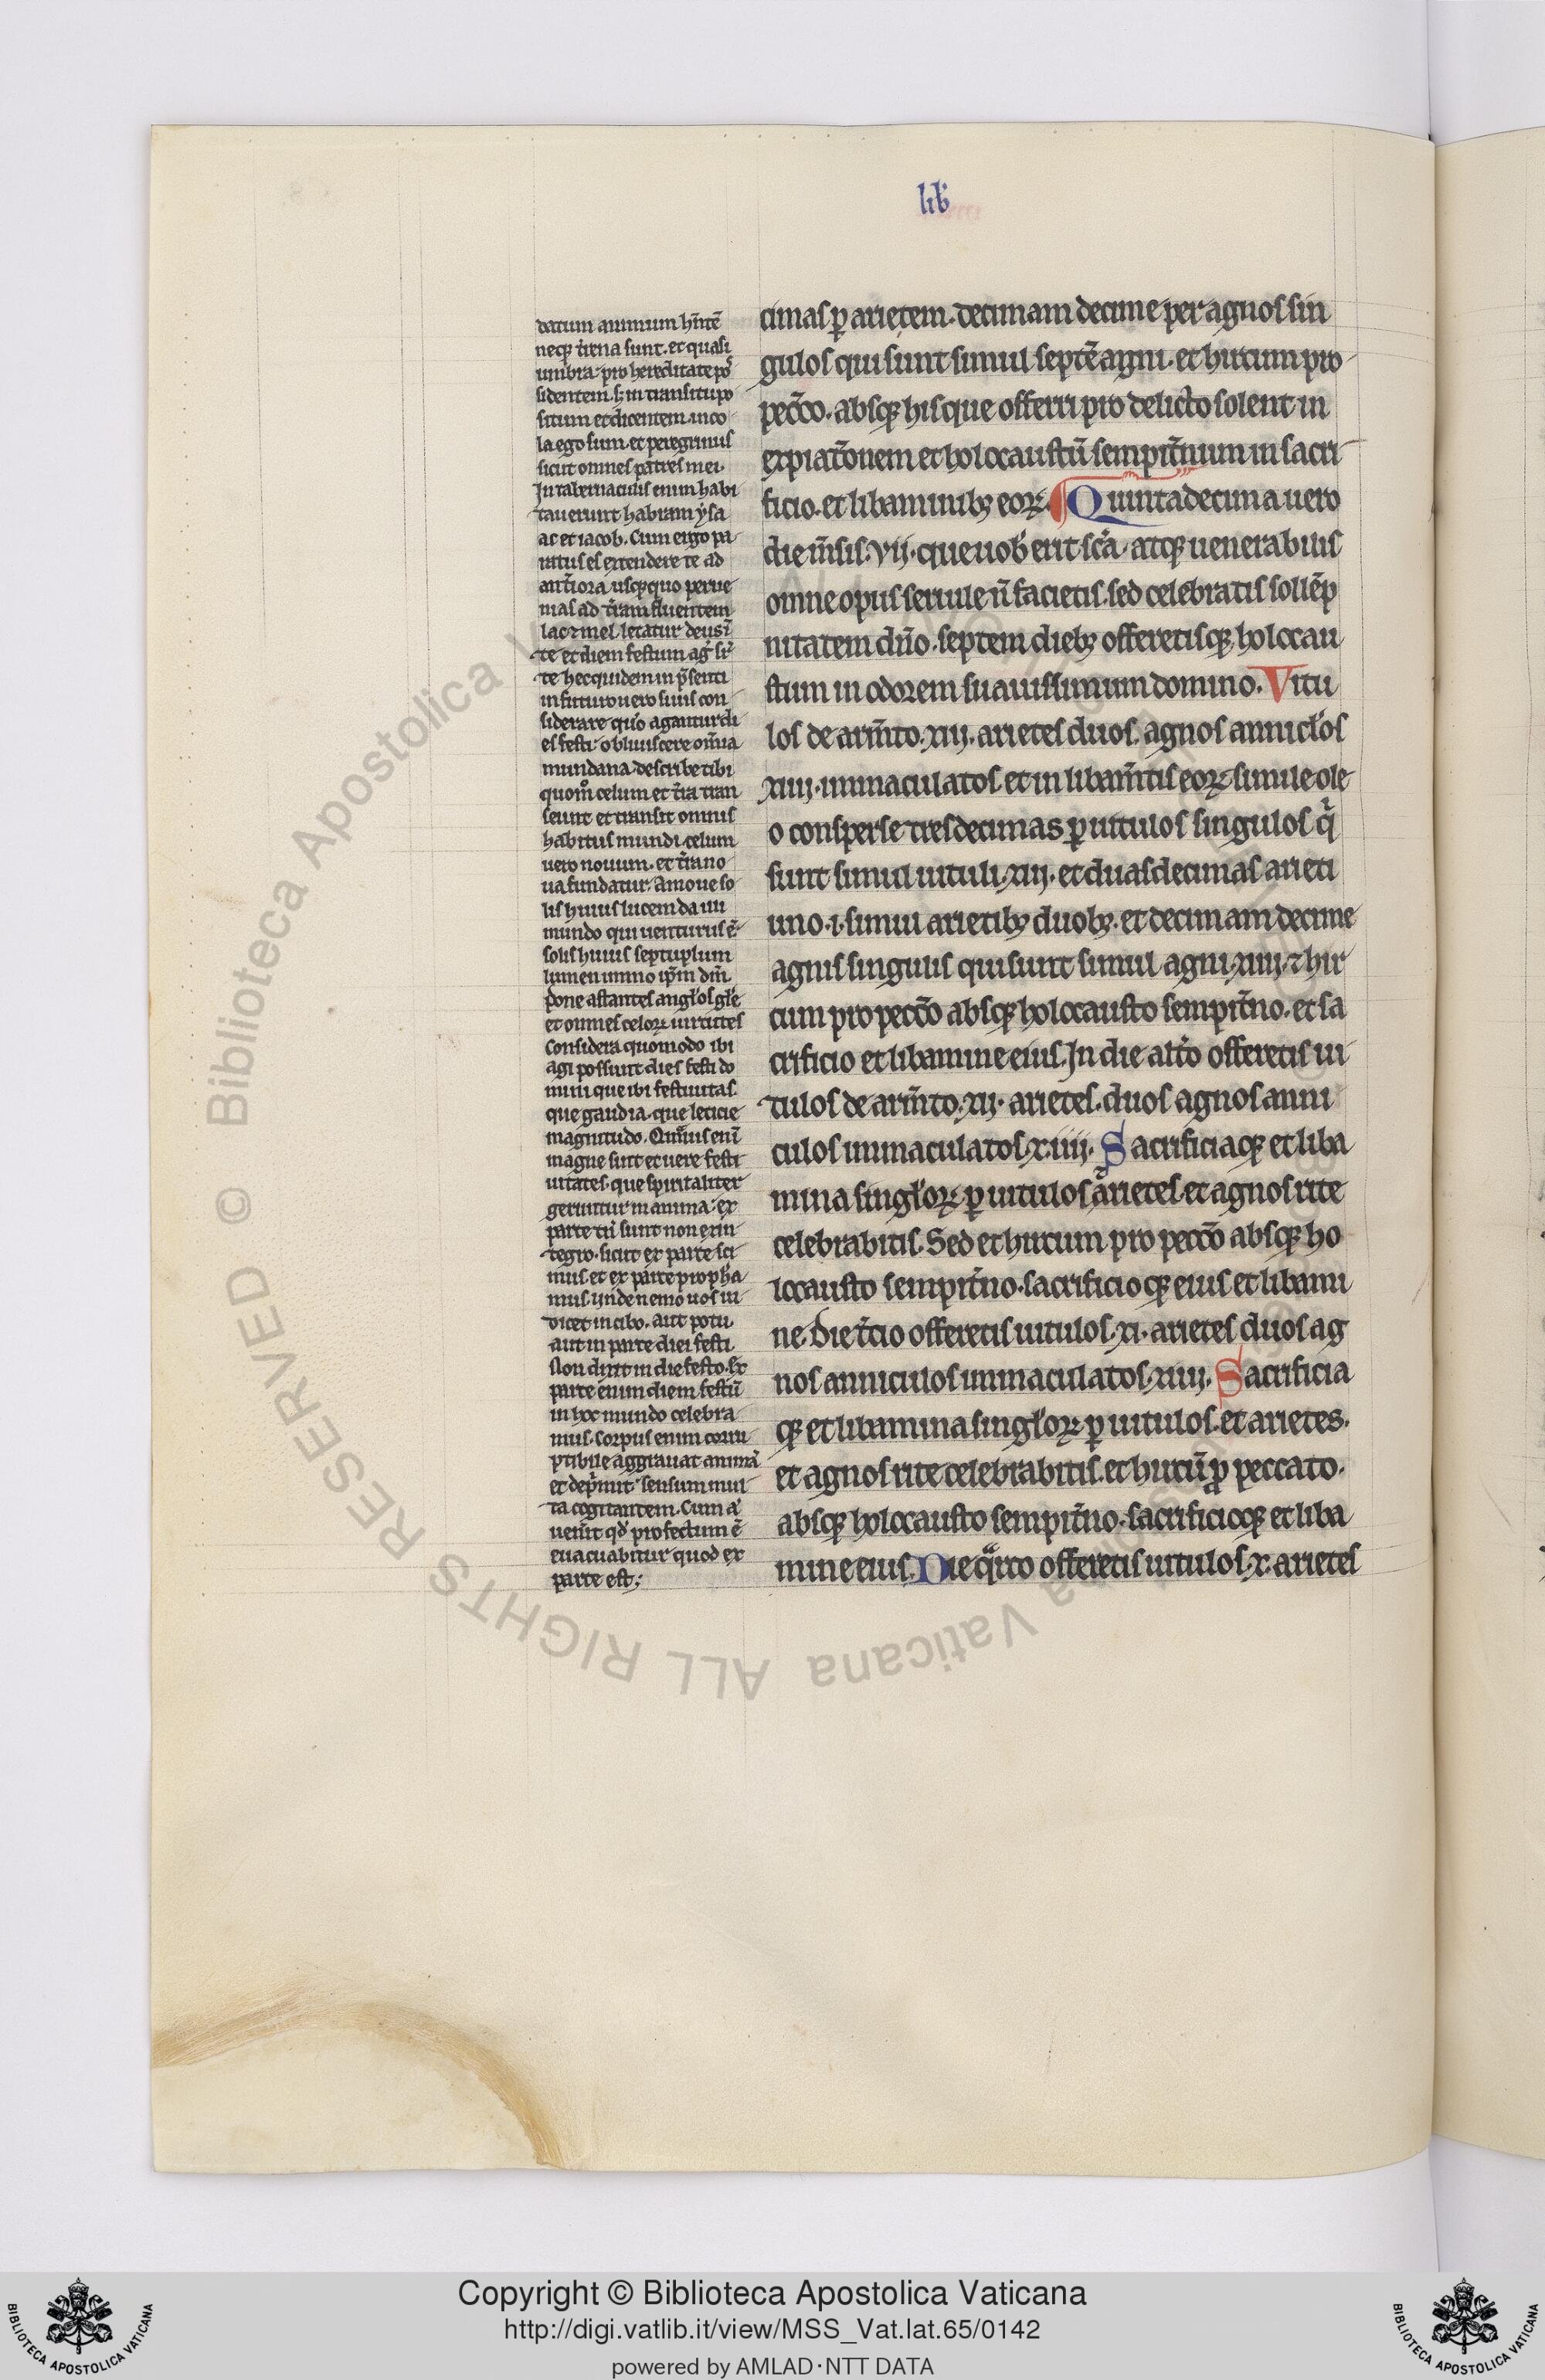 lib̄
datum animum hn̄tē
neqꝫ t̄rena sunt. et quasi
umbra. pro hereditate pos
sidentem. sꝫ in transitu po
situm et dicentem. inco
la ego sum. et peregrinus
sicut omnes patres mei.
In tabernaculis enim habi
tauerunt habram ẏsa
ac et iacob. Cum ergo pa
ratus es extendere te ad
ant̄iora usqꝫ quo perue
nias ad t̄ram fluentem
lac ⁊ mel. letatur deus ī
te et diem festum aḡ sr̄
te hec quidem in p̄senti
in futuro uero si uis con
siderare quo agantur di
es festi. obliuiscere om̄ia
mundana. describe tibi
quom̄ celum et t̄ra tran
seunt et transit omnis
habitus mundi. celum
uero nouum. et t̄ra no
ua fundatur. Amoue so
lis huius lucem da illi
mundo qui uenturus ē
solis huius septuplum
lumen immo ip̄m dn̄m
pone astantes angl̄os gl̄e
et omnes celoꝝ uirtutes
Considera quomodo ibi
agi possunt dies festi do
mini que ibi festiuitas.
que gaudia. que leticie
magnitudo. Quāuis eni
magne sint et uere festi
uitates. que spiritaliter
geruntur in anima. ex
parte tn̄ sunt non ex in
tegro. sicut ex parte sci
mus. et ex parte propha
mus. ỹnde nemo uos iu
dicet in cibo. aut potu
aut in parte diei festi
Non dixit in die festo. Ex
parte enim diem festū
in hoc mundo celebra
mus. Corpus enim corru
ptibile aggrauat animā
et dep̄mit sensum mul
ta cogitantem. Cum a̅
uen̄it qd̄ profectum ē
euacuabitur quod ex
parte est;
cimas ꝑ arietem. decimam decime per agnos sin
gulos qui sunt simul septē agni. et hircum pro
pecc̄o. absqꝫ his que offerri pro delicto solent in
expiat̄onem et holocaustū sempit̄num in sacri
ficio. et libaminibꝫ eoꝝ. Quintadecima uero
die m̄sis. vij. que uob̄ erit sc̄a. atqꝫ uenerabilis
omne opus seruile n̄ facietis. sed celebratis sollēp
nitatem dn̄o. septem diebꝫ offeretisqꝫ holocau
stum in odorem suauissimum domino. Vitu
los de arm̄to. xiij. arietes duos. agnos annicl̄os
xiiij. immaculatos. et in libam̄tis eoꝝ simile ole
o consperse tres decimas ꝑ uitulos singulos q̄
sunt simul uituli. xiij. et duas decimas arieti
uno. i. simul arietibꝫ duobꝫ. et decimam decime
agnis singulis qui sunt simul agni. xiiij. ⁊ hir
cum pro pecc̄o absqꝫ holocausto sempit̄no. et sa
crificio et libamine eius. In die alt̄o offeretis ui
tulos de arm̄to. xij. arietes. duos agnos anni
culos immaculatos. xiiij. Sacrificiaqꝫ et liba
mina singl̄oꝝ ꝑ uitulos ⁊ arietes. et agnos rite
celebrabitis. Sed et hircum pro pecc̄o absqꝫ ho
locausto sempit̄no. sacrificio qꝫ eius et libami
ne. Die t̄cio offeretis uitulos. xi. arietes duos ag
nos anniculos immaculatos. xiiij. Sacrificia
qꝫ et libamina singl̄oꝝ ꝑ uitulos. et arietes.
et agnos rite celebrabitis. et hircū ꝑ peccato.
absqꝫ holocausto sempit̄no. sacrificioqꝫ et liba
mine eius. Die q̄rto offeretis uitulos. x. arietes
© Biblioteca Apostolica Vaticana ALL RIGHTS RESERVED
Copyright © Biblioteca Apostolica Vaticana
http://digi.vatlib.it/view/MSS_Vat.lat.65/0142
powered by AMLAD·NTT DATA
BIBLIOTECA APOSTOLICA VATICANA
BIBLIOTECA APOSTOLICA VATICANA